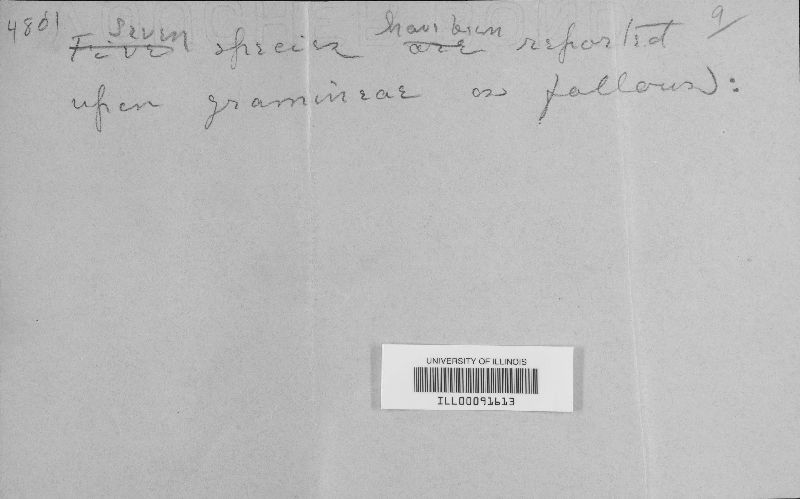 4801 Seven have been 9/
Five species are reported
upon gramineae as follows:
UNIVERSITY OF ILLINOIS
ILL00091613